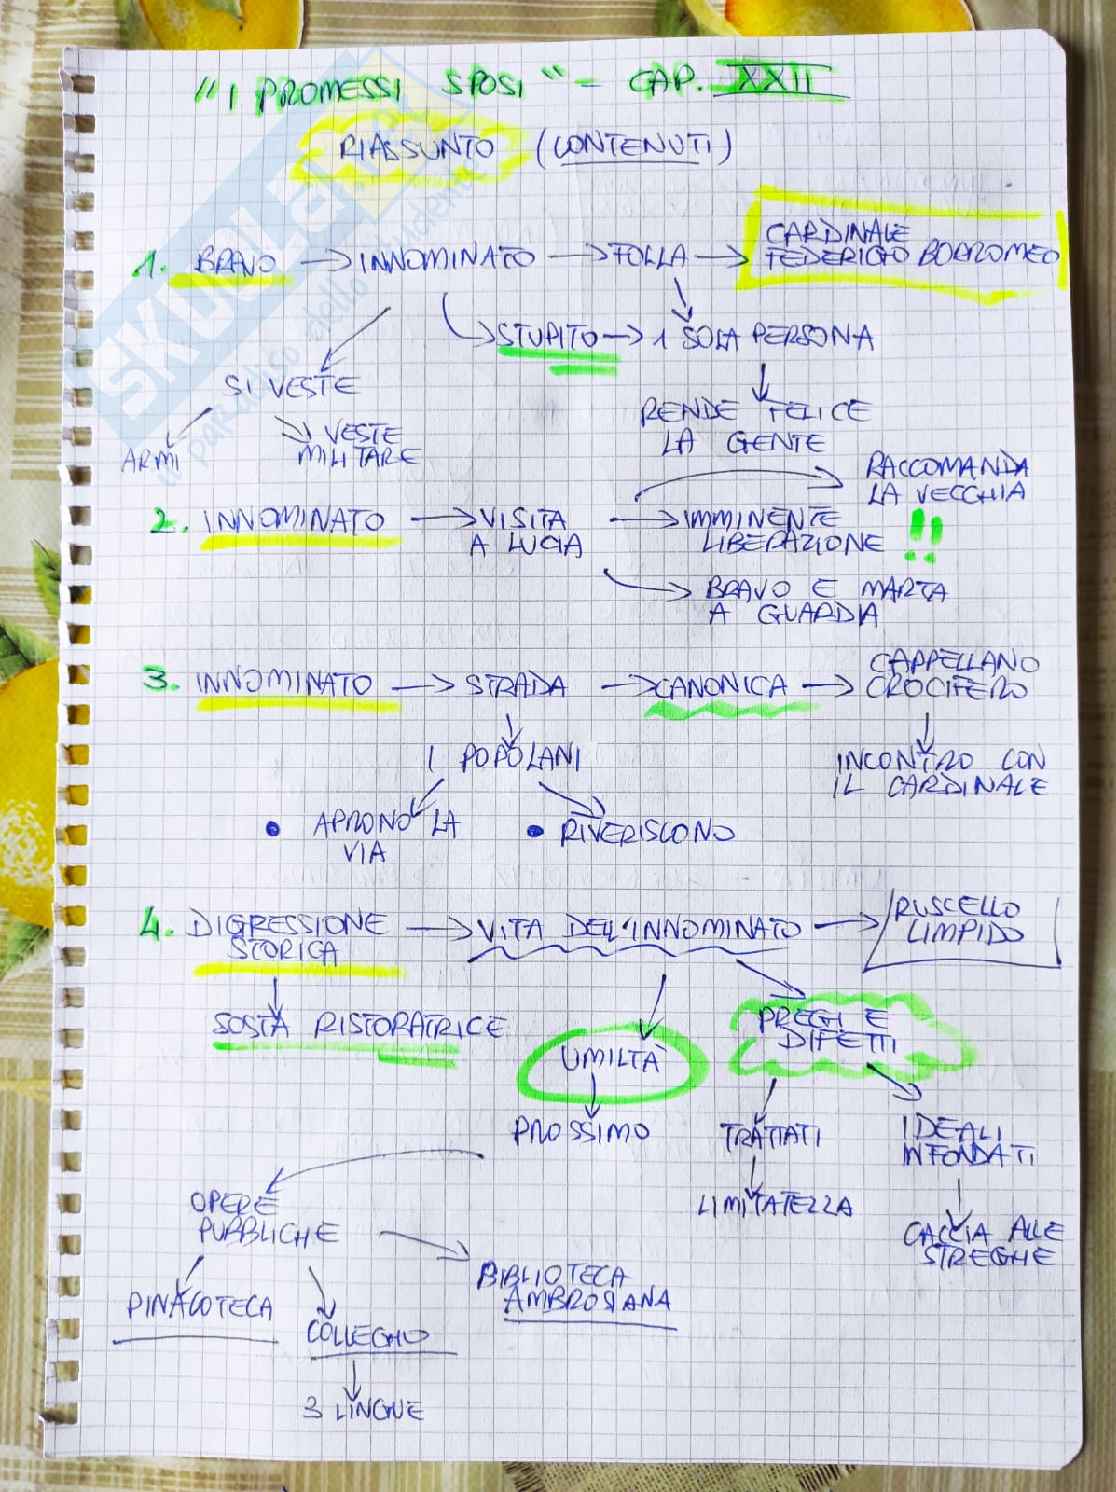 "I PROMESSI SPOSI" - CAP. XXII
RIASSUNTO (CONTENUTI)
1. BRAVO → INNOMINATO → FOLLA → CARDINALE
FEDERIGO BORROMEO
STUPITO → 1 SOLA PERSONA
SI VESTE
RENDE FELICE
LA GENTE
ARMI
VESTE
MILITARE
RACCOMANDA
LA VECCHIA
2. INNOMINATO → VISITA
A LUCIA
→ IMMINENTE
LIBERAZIONE !!
BRAVO E MARTA
A GUARDIA
3. INNOMINATO → STRADA → CANONICA → CAPPELLANO
CROCIFERO
I POPOLANI
INCONTRO CON
IL CARDINALE
• APRONO LA
VIA
• RIVERISCONO
4. DIGRESSIONE
STORICA
→ VITA DELL'INNOMINATO → RUSCELLO
LIMPIDO
SOSTA RISTORATRICE
UMILTÀ
PREGI E
DIFETTI
PROSSIMO
TRATTATI
IDEALI
INFONDATI
LIMITATEZZA
CACCIA ALLE
STREGHE
OPERE
PUBBLICHE
PINACOTECA
COLLEGHO
BIBLIOTECA
AMBROSIANA
3 LINGUE
SKUOLA